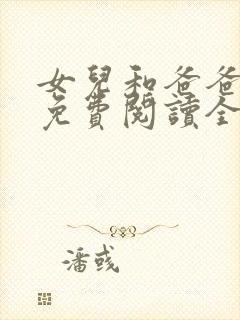 女兒和爸爸
免費閱讀全
潘彧